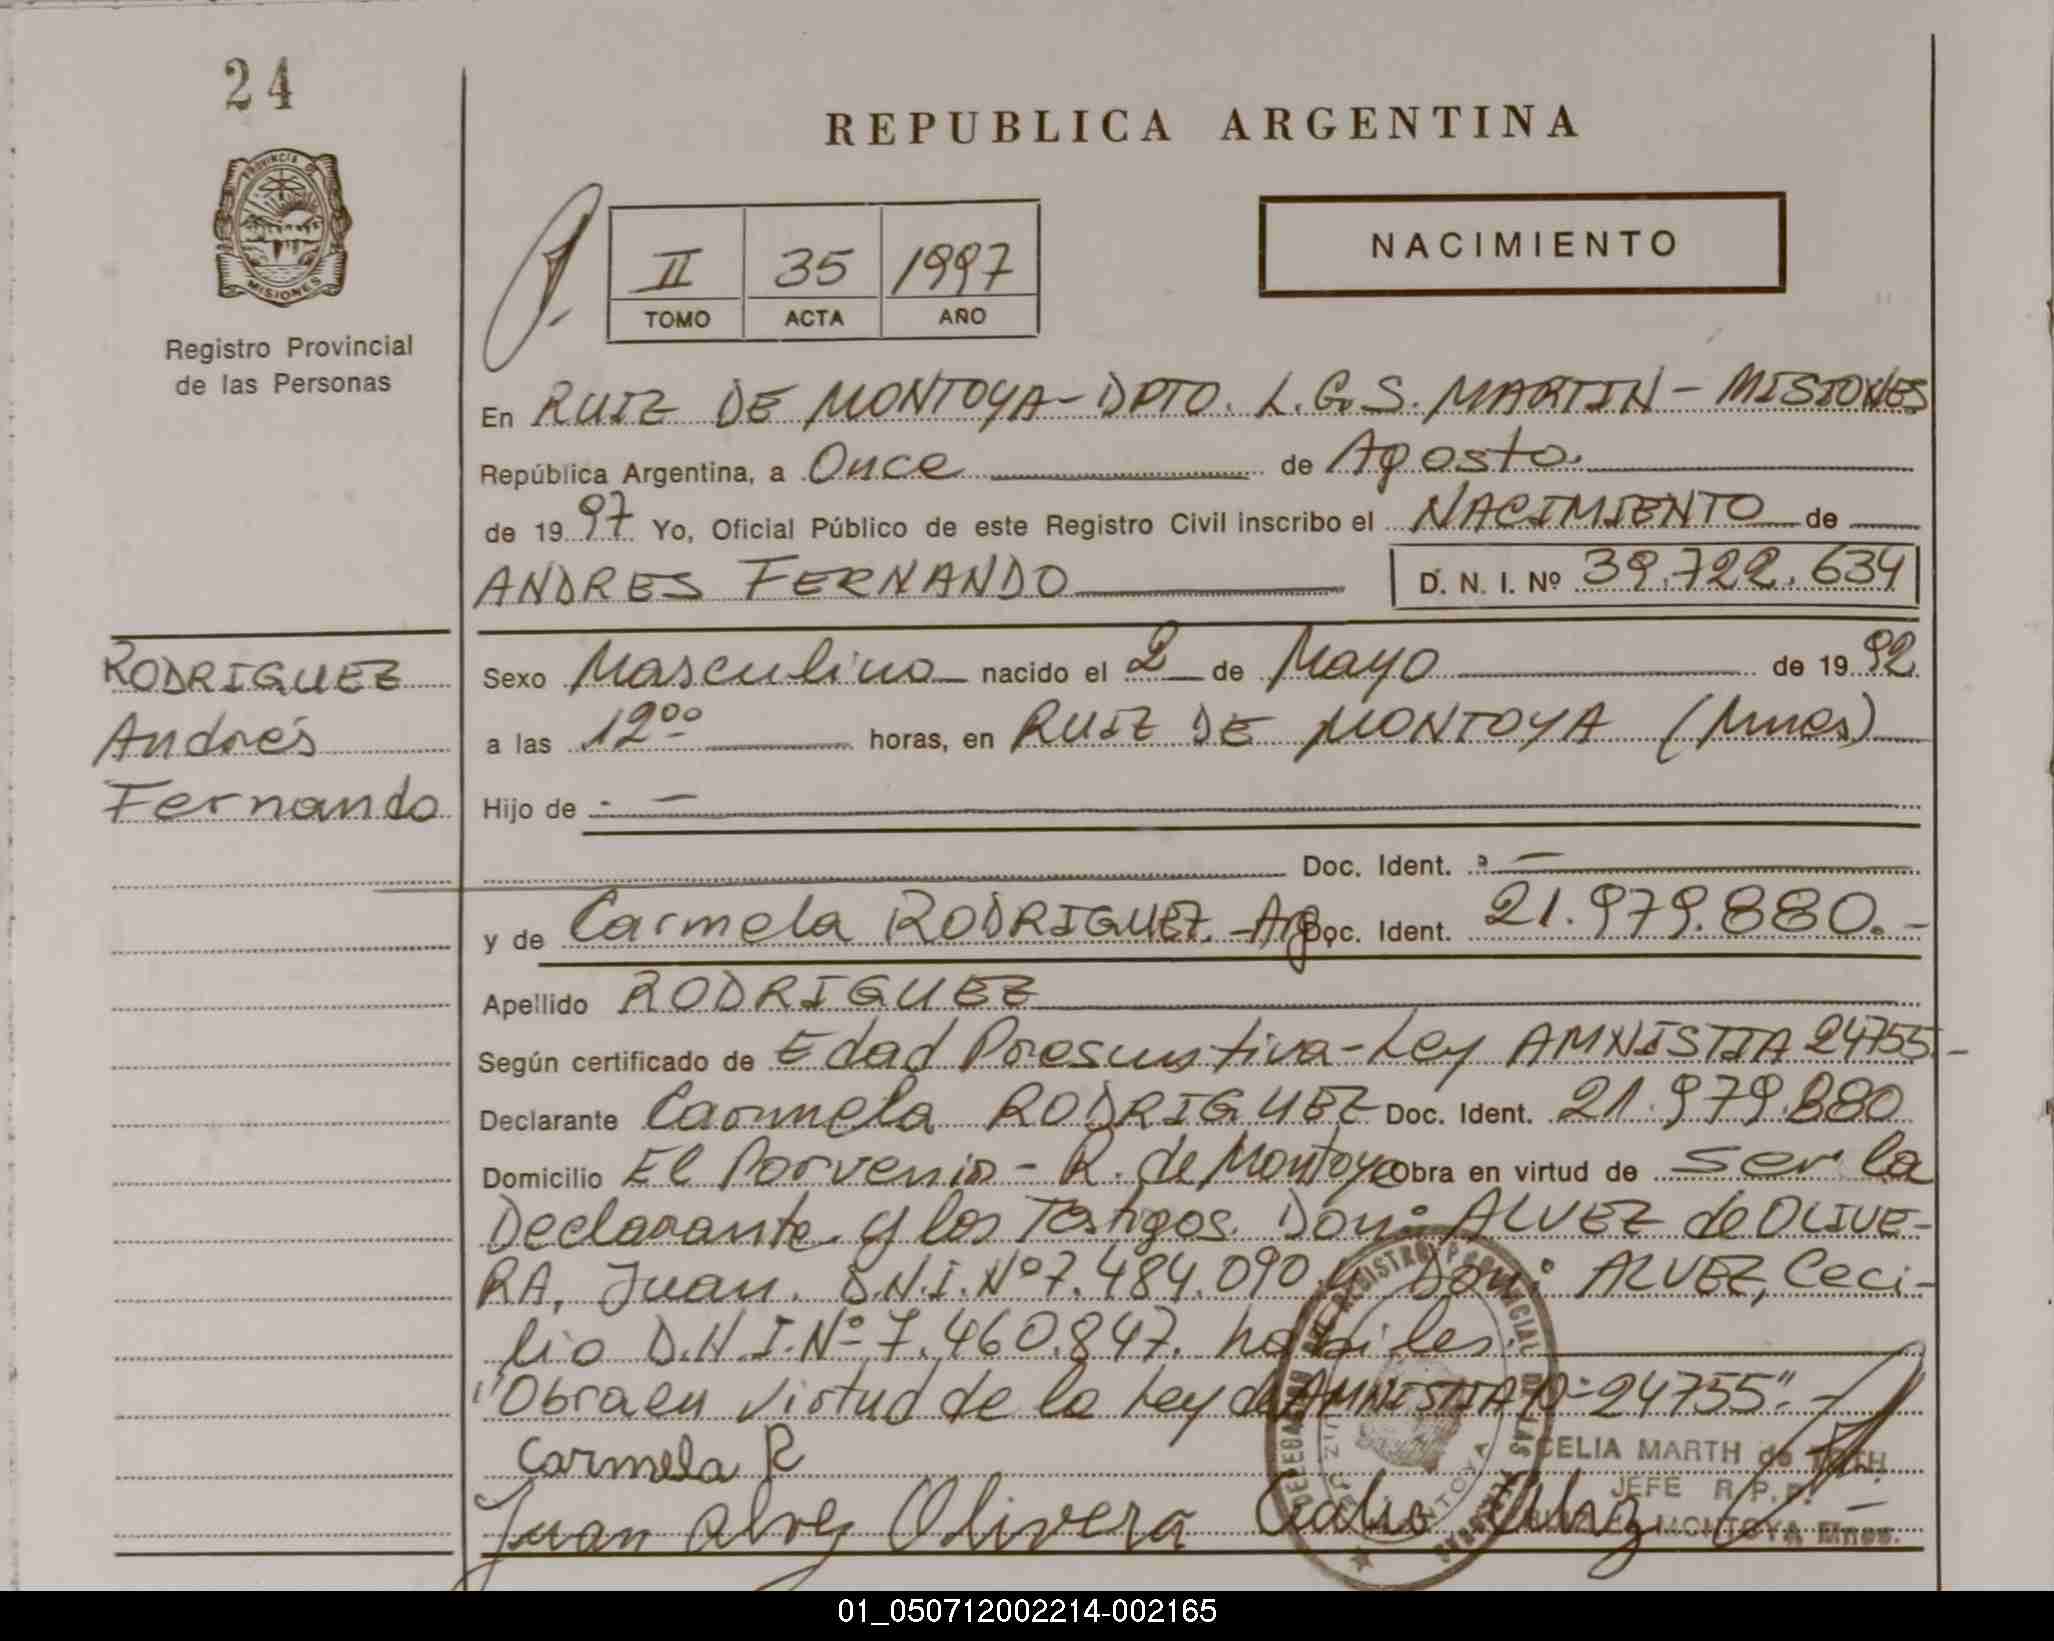 24
REPUBLICA ARGENTINA
PROVINCIA DE
MISIONES
Registro Provincial
de las Personas
II 35 1997
TOMO ACTA AÑO
NACIMIENTO
En RUIZ DE MONTOYA - DPTO. L.G.S. MARTIN - MISIONES
República Argentina, a Once de Agosto.
de 1997 Yo, Oficial Público de este Registro Civil inscribo el NACIMIENTO de
ANDRES FERNANDO D. N. I. Nº 39.722.634
RODRIGUEZ
Andrés
Fernando
Sexo Masculino nacido el 2 de Mayo de 1992
a las 12ºº horas, en RUIZ DE MONTOYA (Mnes)
Hijo de -
Doc. Ident. -
y de Carmela RODRIGUEZ. - Arg. Doc. Ident. 21.979.880.-
Apellido RODRIGUEZ
Según certificado de Edad Presuntiva - Ley AMNISTIA 24755.-
Declarante Carmela RODRIGUEZ Doc. Ident. 21.979.880
Domicilio El Porvenir - R. de Montoya Obra en virtud de ser la
Declarante y los Testigos Don: ALVEZ de OLIVE-
RA, Juan. D.N.I. Nº 7.484.090 y Don: ALVEZ, Ceci-
lio D.N.I. Nº 7.460.847. habiles.
"Obra en virtud de la Ley de AMNISTIA Nº 24755".-
Carmela R
Juan alvez Olivera
CELIA MARTH de
JEFE R.P.P.
MONTOYA Mnes.
01_050712002214-002165